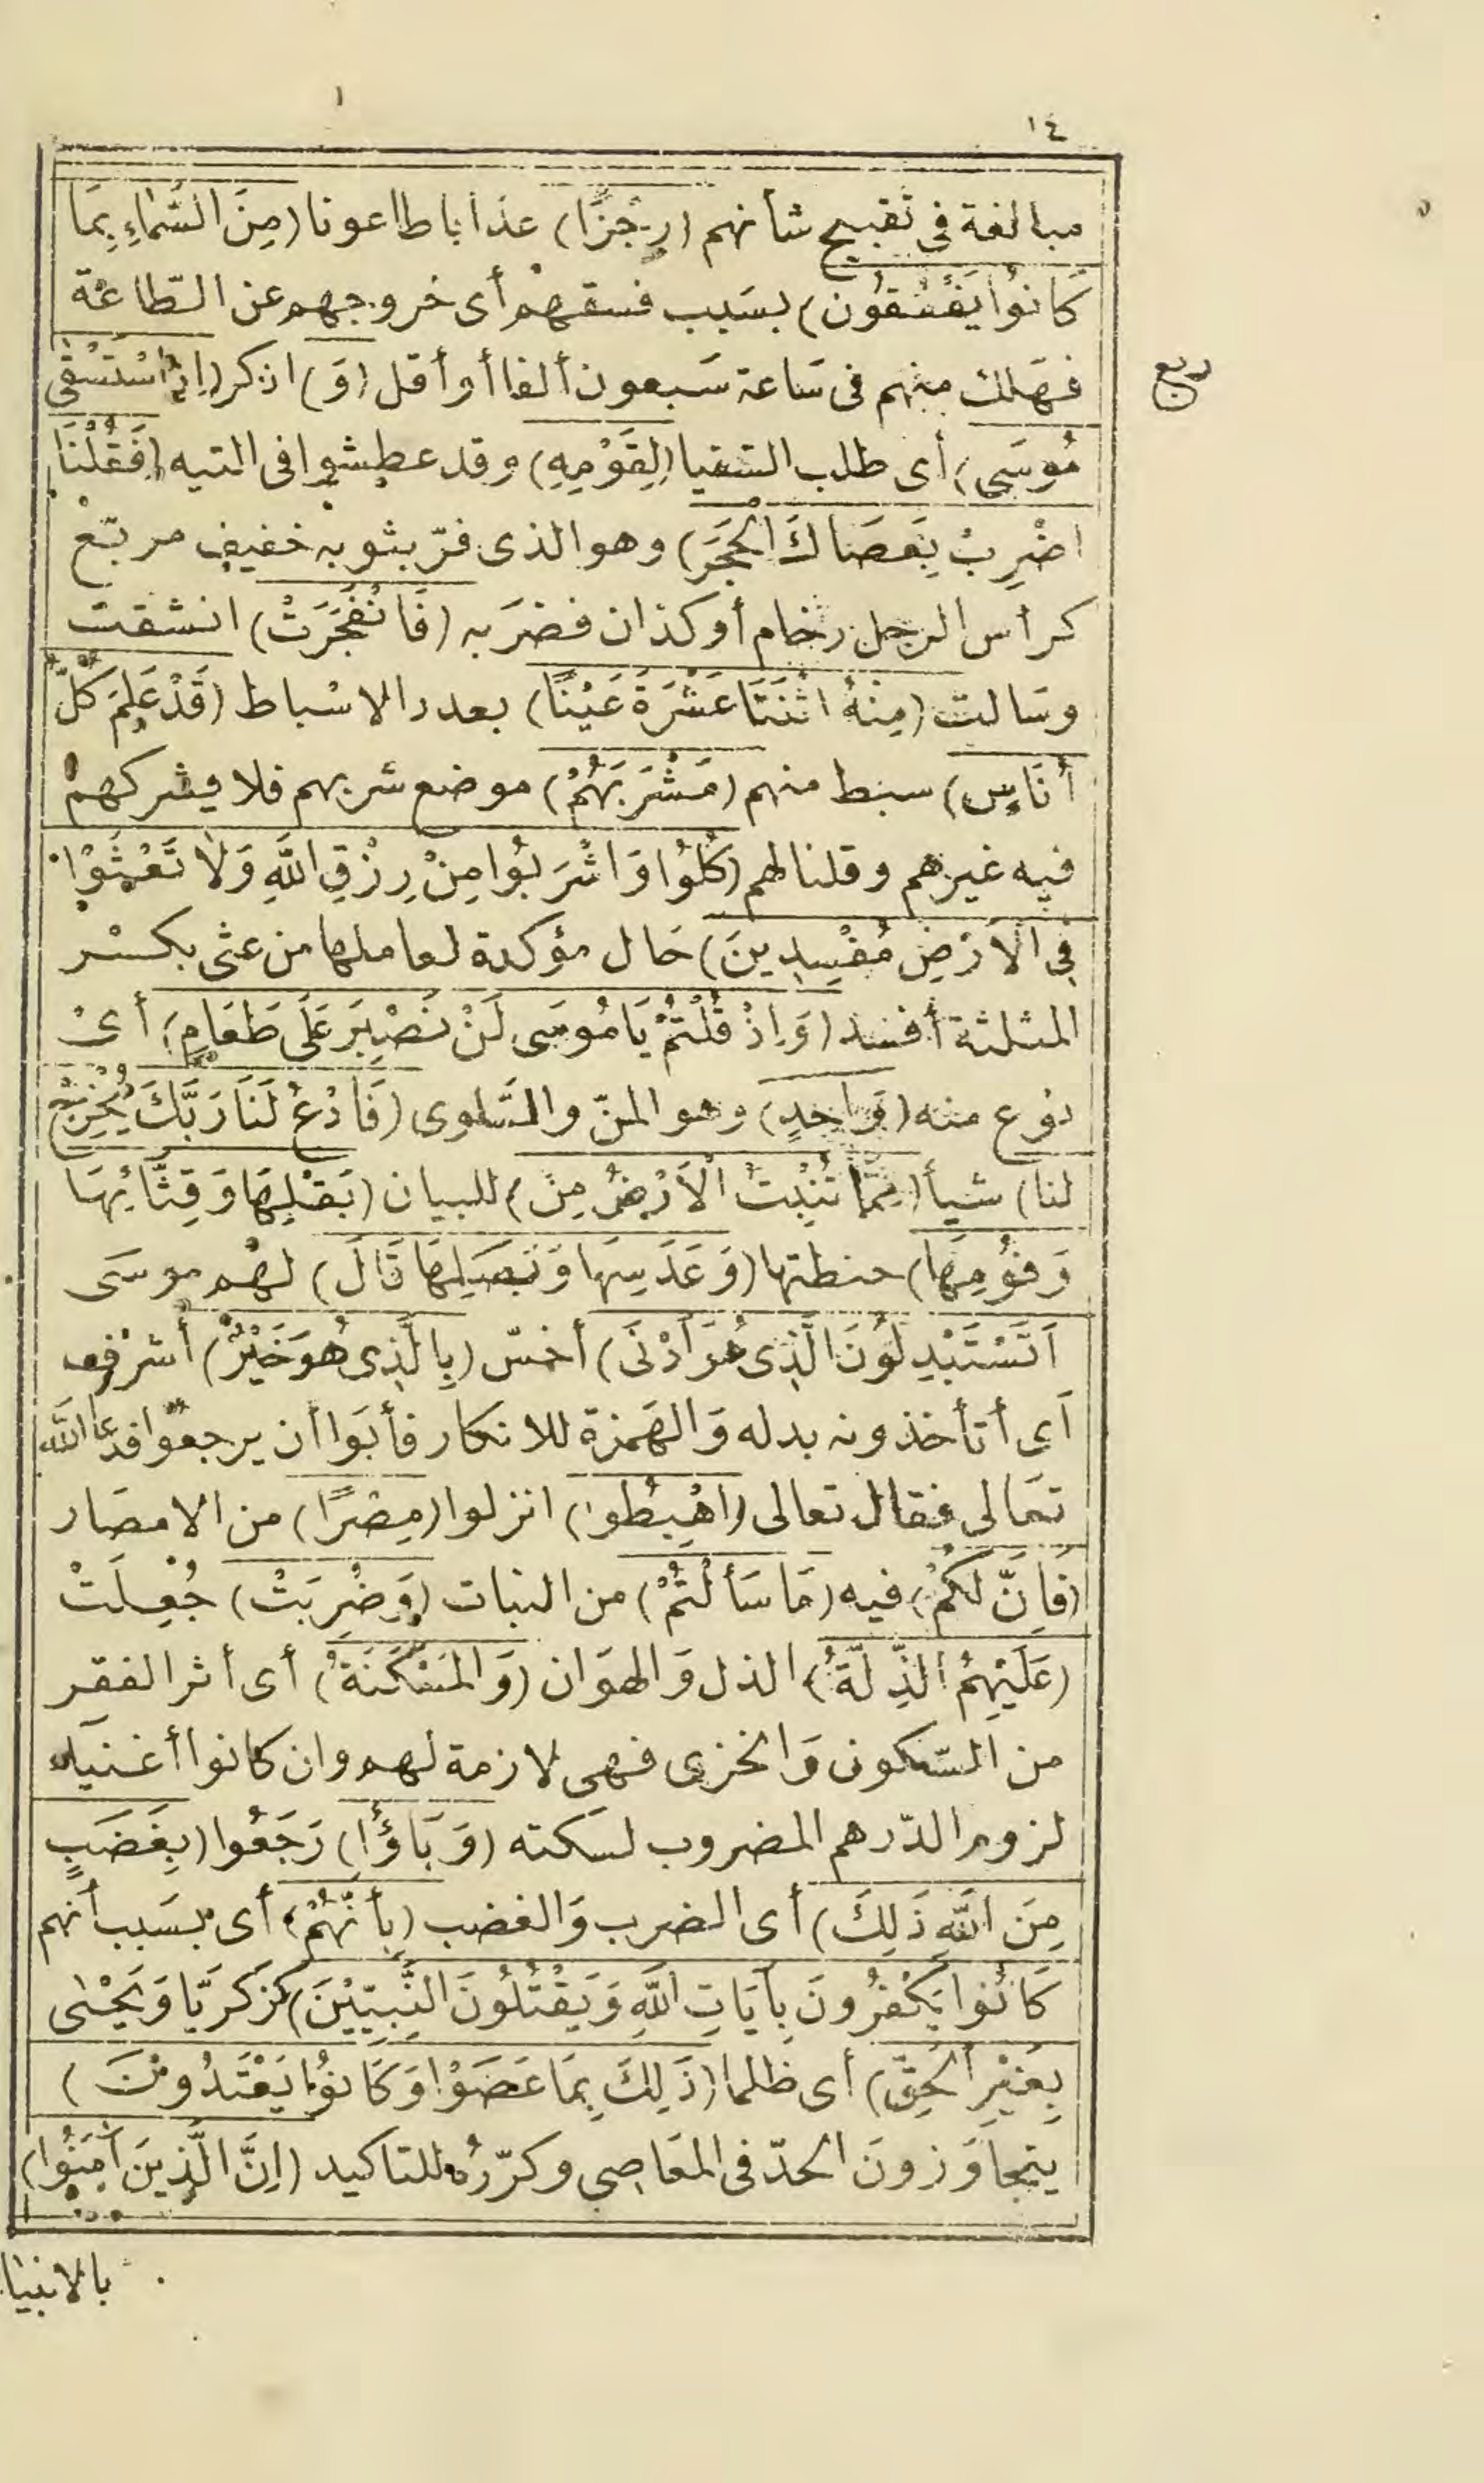 ١٤
مبالغة فى تقبيح شأنهم (رِجْزًا) عذابا طاعونا (مِنَ السَّمَاءِ بِمَا
كَانُوا يَفْسُقُون) بسَبب فسقهم أى خروجهم عن الطّاعَة
فهَلك منهم فى سَاعة سَبعون ألفا أو أقل (وَ) اذكر (اِذِ اسْتَسْقٰى
مُوسَى) أى طلب السّقيا (لِقَوْمِهِ) وقد عطِشوا فى التيه (فَقُلْنَا
اضْرِبْ بِعَصَاكَ الْحَجَرَ) وهو الذى فرّ بثوبه خفيف مربّع
كرأس الرجل رخام أو كذان فضرَبه (فَانْفَجَرَتْ) انشقت
وسَالت (مِنْهُ اثْنَتَا عَشْرَةَ عَيْنًا) بعدد الاسْباط (قَدْ عَلِمَ كُلُّ
أُنَاسٍ) سبط منهم (مَشْرَبَهُمْ) موضع شربهم فلا يشركهمْ
فيه غيرهم وقلنا لهم (كُلُوا وَاشْرَبُوا مِنْ رِزْقِ اللَّهِ وَلَا تَعْثَوْا
فِى الْاَرْضِ مُفْسِدِينَ) حَال مؤكدة لعاملها من عثى بكسْر
المثلثة أفسد (وَاِذْ قُلْتُمْ يَا مُوسَى لَنْ نَصْبِرَ عَلَى طَعَامٍ) أىْ
نوع منه (وَاحِدٍ) وهو المنّ والسَّلوى (فَادْعُ لَنَا رَبَّكَ يُخْرِجْ
لنا) شيأ (مِمَّا تُنْبِتُ الْاَرْضُ مِنْ) للبيان (بَقْلِهَا وَقِثَّائِهَا
وَفُوْمِهَا) حنطتها (وَعَدَسِهَا وَبَصَلِهَا قَالَ) لهُم موسَى
اَتَسْتَبْدِلُونَ الَّذِى هُوَ أَدْنَى) أخسّ (بِالَّذِى هُوَ خَيْرٌ) أشرف
اَى أتأخذونه بدله وَالهَمزة للانكار فأبَوا أن يرجعوا فدعا اللَّه
تعَالى فقال تعالى (اهْبِطُوا) انزلوا (مِصْرًا) من الامصَار
(فَاِنَّ لَكُمْ) فيه (مَا سَأَلْتُمْ) من النبات (وَضُرِبَتْ) جُعِلَتْ
(عَلَيْهِمُ الذِّلَّةُ) الذل وَالهوَان (وَالمَسْكَنَةُ) أى أثر الفقر
من السّكون وَالخزى فهى لازمة لهم وان كانوا أغنيآء
لزوم الدّرهم المضروب لسَكته (وَبَاؤُا) رَجَعُوا (بِغَضَبٍ
مِنَ اللَّهِ ذَلِكَ) أى الضرب وَالغضب (بِأَنَّهُمْ) أى بسَبب أنهم
كَانُوا يَكْفُرُونَ بِآيَاتِ اللَّهِ وَيَقْتُلُونَ النَّبِيّيْنَ) كزَكريَّا وَيَحْيٰى
بِغَيْرِ الْحَقِّ) أى ظلما (ذَلِكَ بِمَا عَصَوْا وَكَانُوا يَعْتَدُونَ)
يتجاوَزونَ الحدّ فى المعَاصِى وكرّرهُ للتاكيد (اِنَّ الَّذِينَ آمَنُوا)
بالانبيا
ربع